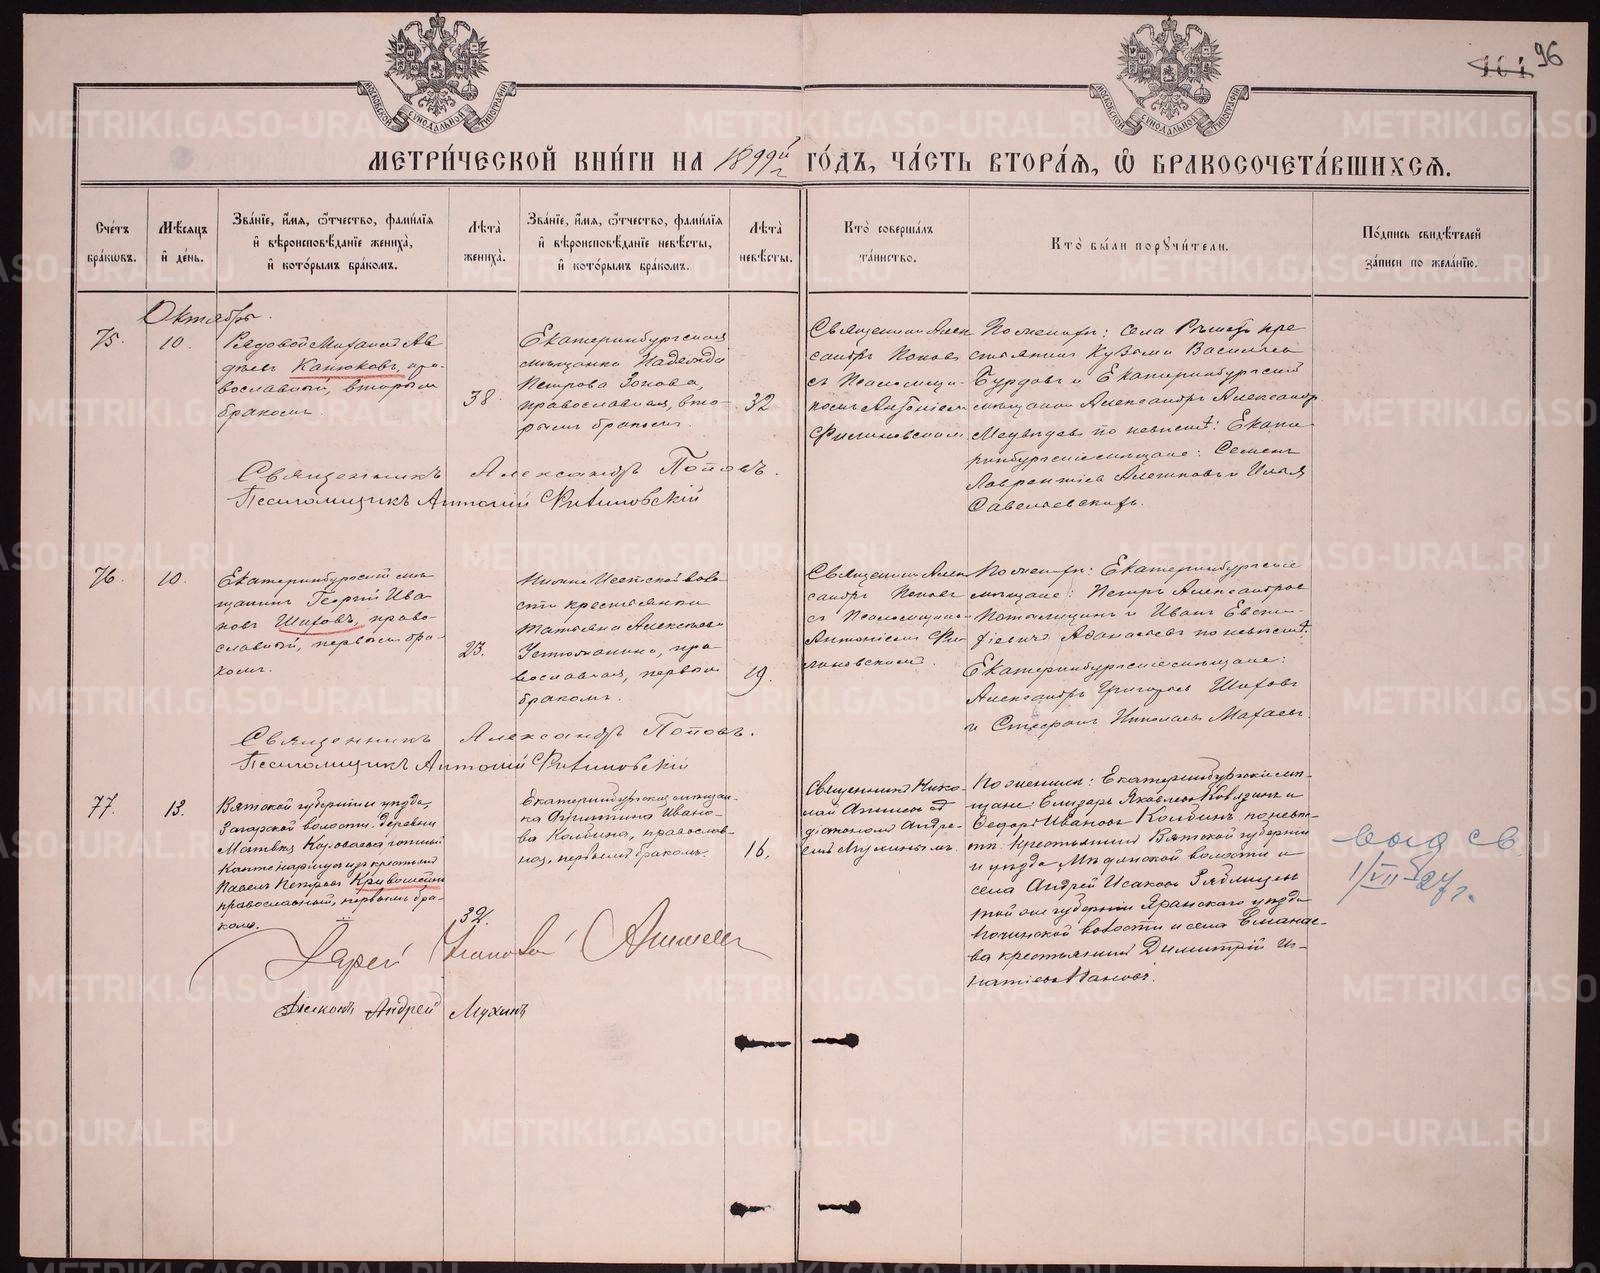 96
МОСКОВСКОЙ СѴНОДАЛЬНОЙ ТИПОГРАФІИ
МОСКОВСКОЙ СѴНОДАЛЬНОЙ ТИПОГРАФІИ
МЕТРИ́ЧЕСКОЙ КНИ́ГИ НА 1899й г ГО́ДЪ, ЧА́СТЬ ВТОРА́Я, Ѽ БРАКОСОЧЕТА́ВШИХСЯ.
Сче́тъ бра́ковъ.
Мѣ́сяцъ и҆ де́нь.
Зва́нїе, и҆́мя, ѻ҆́тчество, фами́лїя и҆ вѣроисповѣ́данїе жениха̀, и҆ кото́рымъ бра́комъ.
Лѣ́та жениха̀.
Зва́нїе, и҆́мя, ѻ҆́тчество, фами́лїя и҆ вѣроисповѣ́данїе невѣ́сты, и҆ кото́рымъ бра́комъ.
Лѣ́та невѣ́сты.
Кто̀ соверша́лъ та́инство.
Кто̀ бы́ли порꙋчи́тели.
По́дпись свидѣ́телей за́писи по жела́нїю.
Октябрь.
75.
10.
Рядовой Михаилъ Ав
дѣевъ Канюковъ, пра-
вославный, вторымъ
бракомъ.
38.
Екатеринбургская
мѣщанка Надежда
Петрова Зонова,
православная, вто-
рымъ бракомъ.
32
Священникъ Алек
сандръ Поповъ
съ Псаломщи-
комъ Антоніемъ
Фитиновскимъ
По женихѣ: села
Кузьма Васильевъ
Бурдовъ и Екатеринбургскій
мѣщанинъ Александръ Александр
Медвѣдевъ по невѣстѣ: Екате
ринбургскіе мѣщане: Семенъ
Лаврентіевъ и Илья
Савельевъ
Священникъ Александръ Поповъ.
Псаломщикъ Антоній Фитиновскій
76.
10.
Екатеринбургскій мѣ-
щанинъ Георгій Ива-
новъ Шиховъ, право-
славный, первымъ бра-
комъ.
23.
Нижне Исетской воло-
сти крестьянка
Татьяна Алексѣева
Устюжанина, пра-
вославная, первымъ
бракомъ.
19.
Священникъ Алек
сандръ Поповъ
съ Псаломщик.
Антоніемъ Фи-
тиновскимъ.
По женихѣ: Екатеринбургскіе
мѣщане: Петръ Александровъ
и Иванъ Евста-
фіевичъ Аѳанасьевъ по невѣстѣ:
Екатеринбургскіе мѣщане:
Александръ Григорьевъ Шиховъ
и Стефанъ Николаевъ
Священникъ Александръ Поповъ.
Псаломщикъ Антоній Фитиновскій
77.
13.
Вятской губерніи и уѣзда,
Загарской волости, деревни
Матвѣя
изъ крестьянъ
Павелъ Петровъ Кривошеинъ
православный, первымъ бра-
комъ.
32.
Екатеринбургская мѣщан-
ка Августина Ивано-
ва Колбина, православ-
ная, первымъ бракомъ.
16.
Священникъ Нико-
лай съ
діакономъ Андре-
емъ Мухинымъ.
По женихѣ: Екатеринбургскіе мѣ-
щане: Елизаръ Яковлевъ Ковязинъ и
Ѳедоръ Ивановъ Колбинъ. по невѣс-
тѣ: Крестьянинъ Вятской губерніи
и уѣзда Мѣдянской волости и
села Андрей Исаковъ
той же губерніи Яранскаго уѣзда
волости и села
крестьянинъ Димитрій Иг-
натіевъ Пановъ.
выд св
1/VII-27 г.
Діаконъ Андрей Мухинъ
METRIKI.GASO-URAL.RU